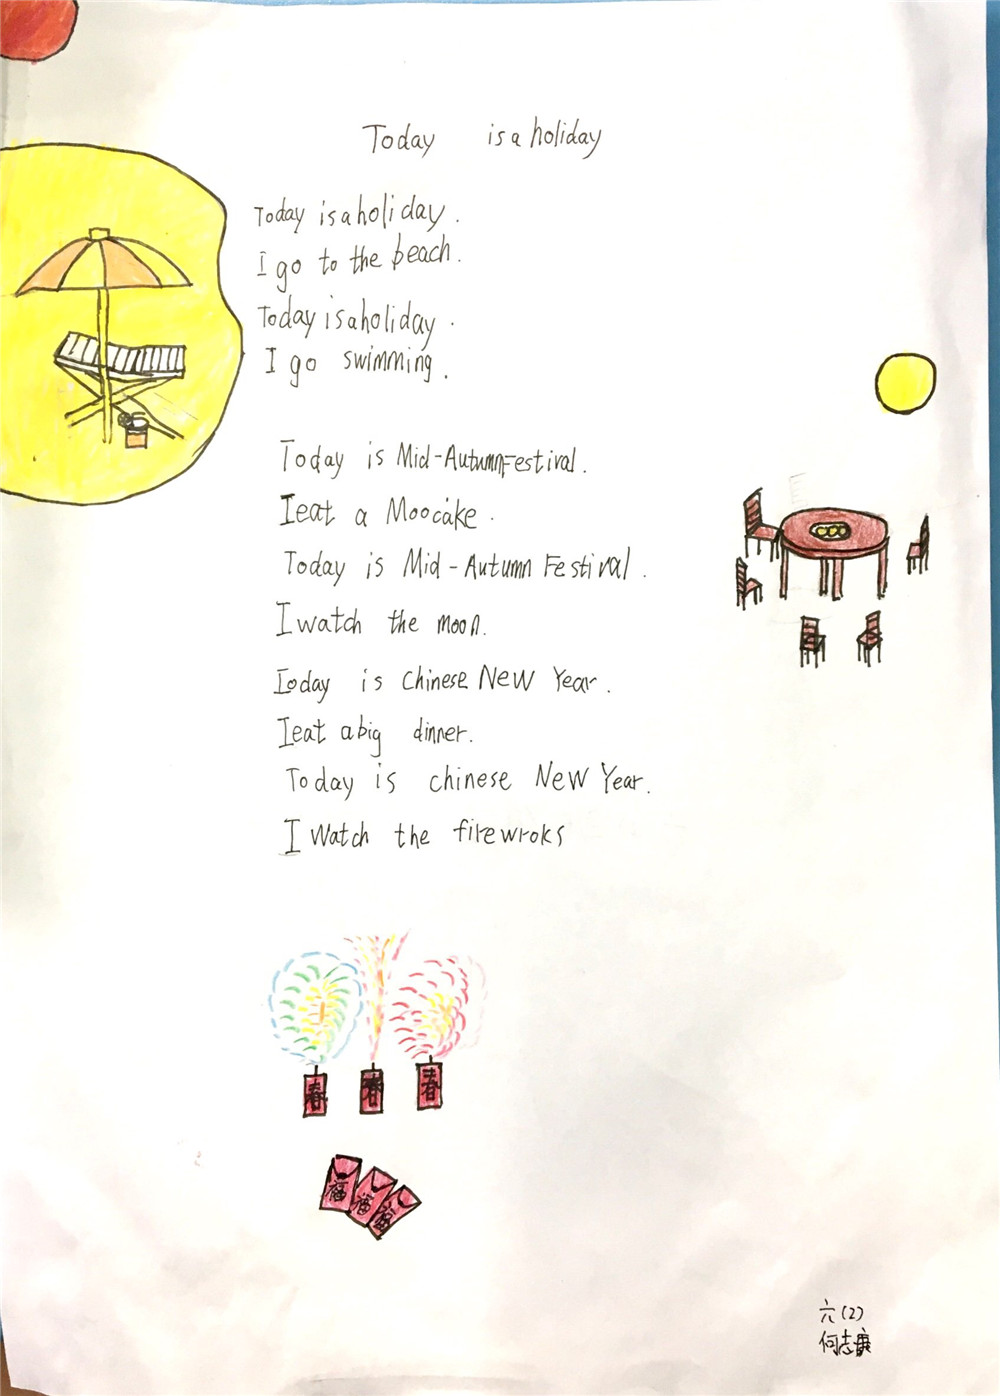 Today is a holiday
Today is a holiday.
I go to the beach.
Today is a holiday.
I go swimming.
Today is Mid-Autumn Festival.
I eat a Moocake.
Today is Mid-Autumn Festival.
I watch the moon.
Ioday is chinese New Year.
I eat a big dinner.
Today is chinese New Year.
I Watch the firewroks
春 春 春
福 福 福
六(2)
何志康